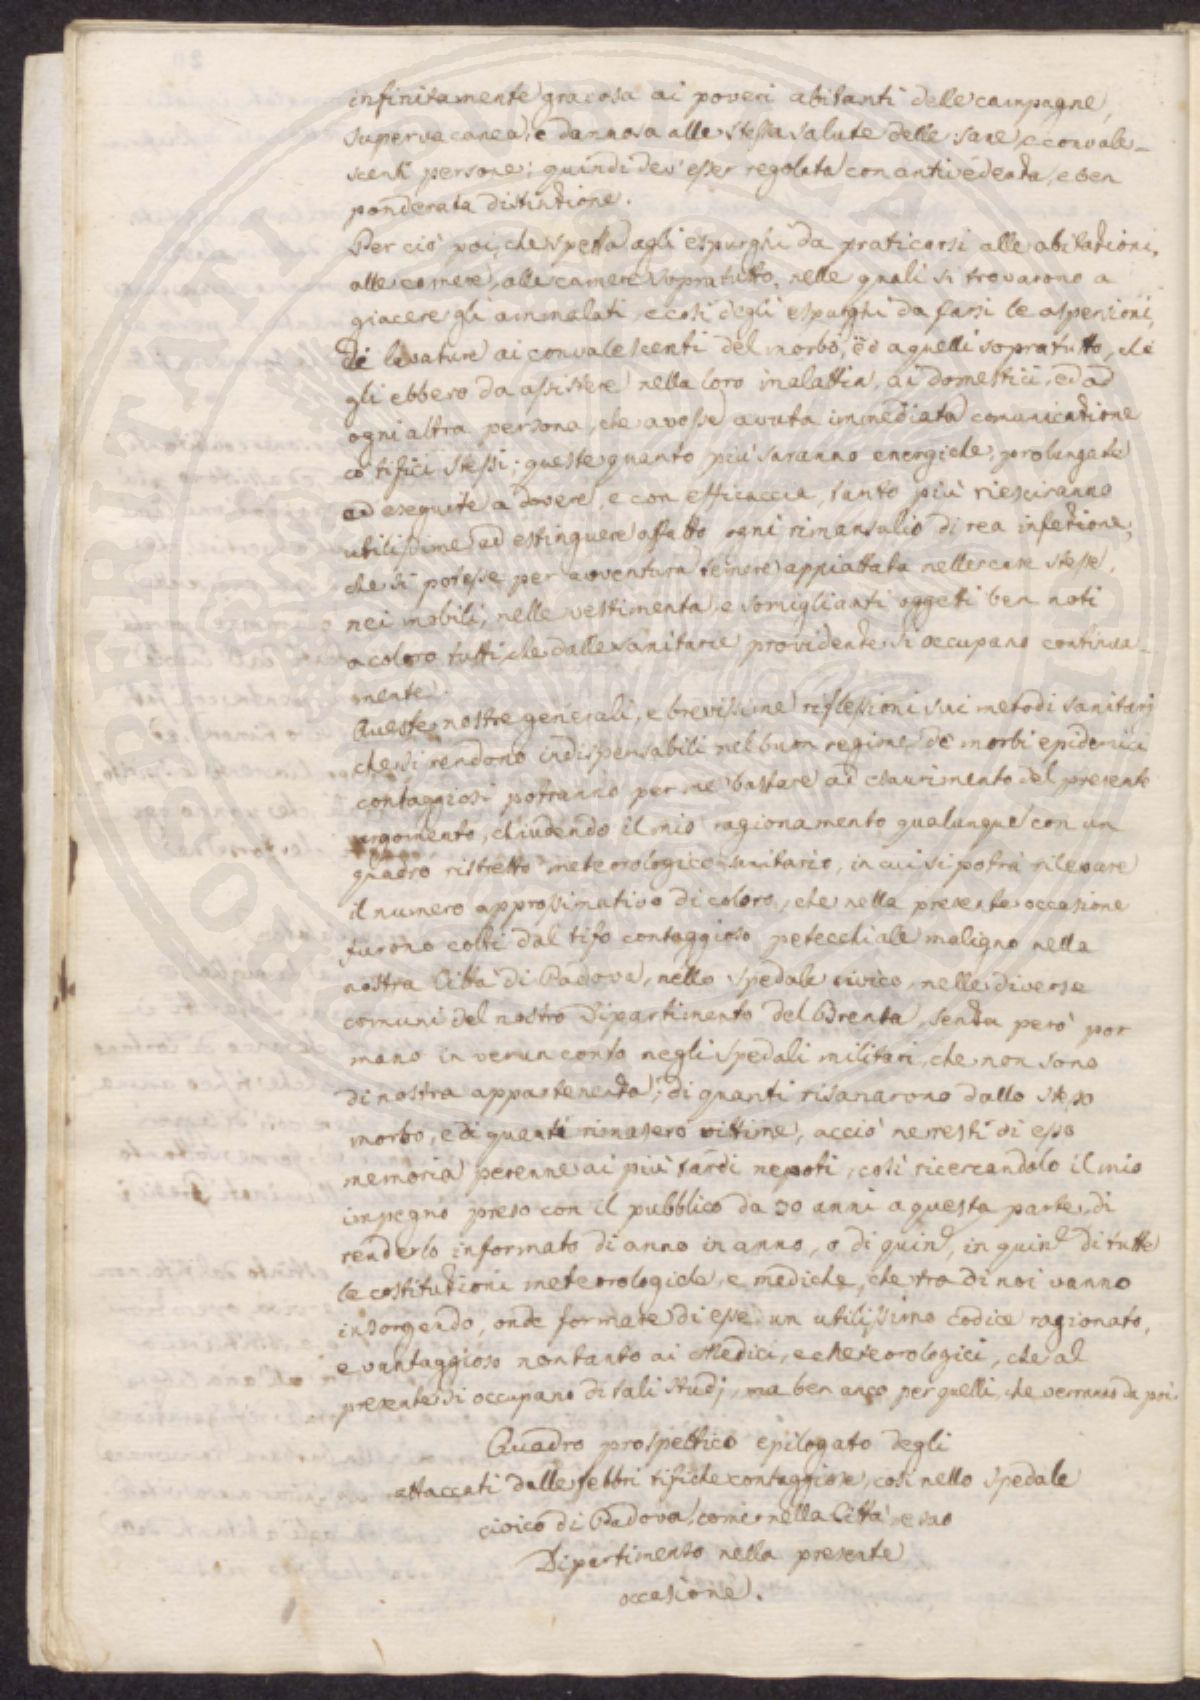 infinitamente gravosa ai poveri abitanti delle campagne,
supervacanea, e dannosa alla stessa salute delle sane, e convale-
scenti persone; quindi dev'esser regolata con antivedenza, e ben
ponderata distinzione.
Per ciò poi, che spetta agli espurghi da praticarsi alle abitazioni,
alle camere, alle camere sopratutto, nelle quali si trovarono a
giacere gli ammalati, e così degli espurghi da farsi le aspersioni,
le lavature ai convalescenti del morbo, ed a quelli sopratutto, che
gli ebbero da assistere nella loro malattia, ai domestici, ed ad
ogni altra persona, che avesse avuta immediata comunicazione
co' tifici stessi; queste quanto più saranno energiche, prolungate
ed eseguite a dovere, e con efficaccia, tanto più riesciranno
utilissime ad estinguere affatto ogni rimansulio di rea infezione,
che si potesse per avventura temere appiattata nelle case stesse,
nei mobili, nelle vestimenta, e somiglianti oggetti ben noti
a coloro tutti, che dalle sanitarie providenze si occupano continua-
mente.
Queste nostre generali, e brevissime riflessioni sui metodi sanitarj
che si rendono indispensabili nel buon regime de' morbi epidemici
contaggiosi potranno per me bastare ad esaurimento del presente
argomento, chiudendo il mio ragionamento qualunque con un
quadro ristretto meteorologico-sanitario, in cui si potrà rilevare
il numero approssimativo di coloro, che nella presente occasione
furono colti dal tifo contaggioso petecchiale maligno nella
nostra Città di Padova, nello spedale civico, nelle diverse
comuni del nostro Dipartimento del Brenta, senza però por
mano in verun conto negli spedali militari, che non sono
di nostra appartenenza; di quanti risanarono dallo stesso
morbo, e di quanti rimasero vittime, acciò ne resti di esso
memoria perenne ai più tardi nepoti, così ricercandolo il mio
impegno preso con il pubblico da 30 anni a questa parte, di
renderlo informato di anno in anno, o di quin.o in quin.o di tutte
le costituzioni meteorologiche, e mediche, che tra di noi vanno
insorgendo, onde formare di esse un utilissimo codice ragionato,
e vantaggioso non tanto ai Medici, e Meteorologici, che al
presente si occupano di tali studj, ma ben anco per quelli, che verranno da poi.
Quadro prospettico epilogato degli
attaccati dalle febbri tifiche contaggiose, così nello spedale
civico di Padova, come nella Città, e suo
Dipartimento nella presente
occasione.